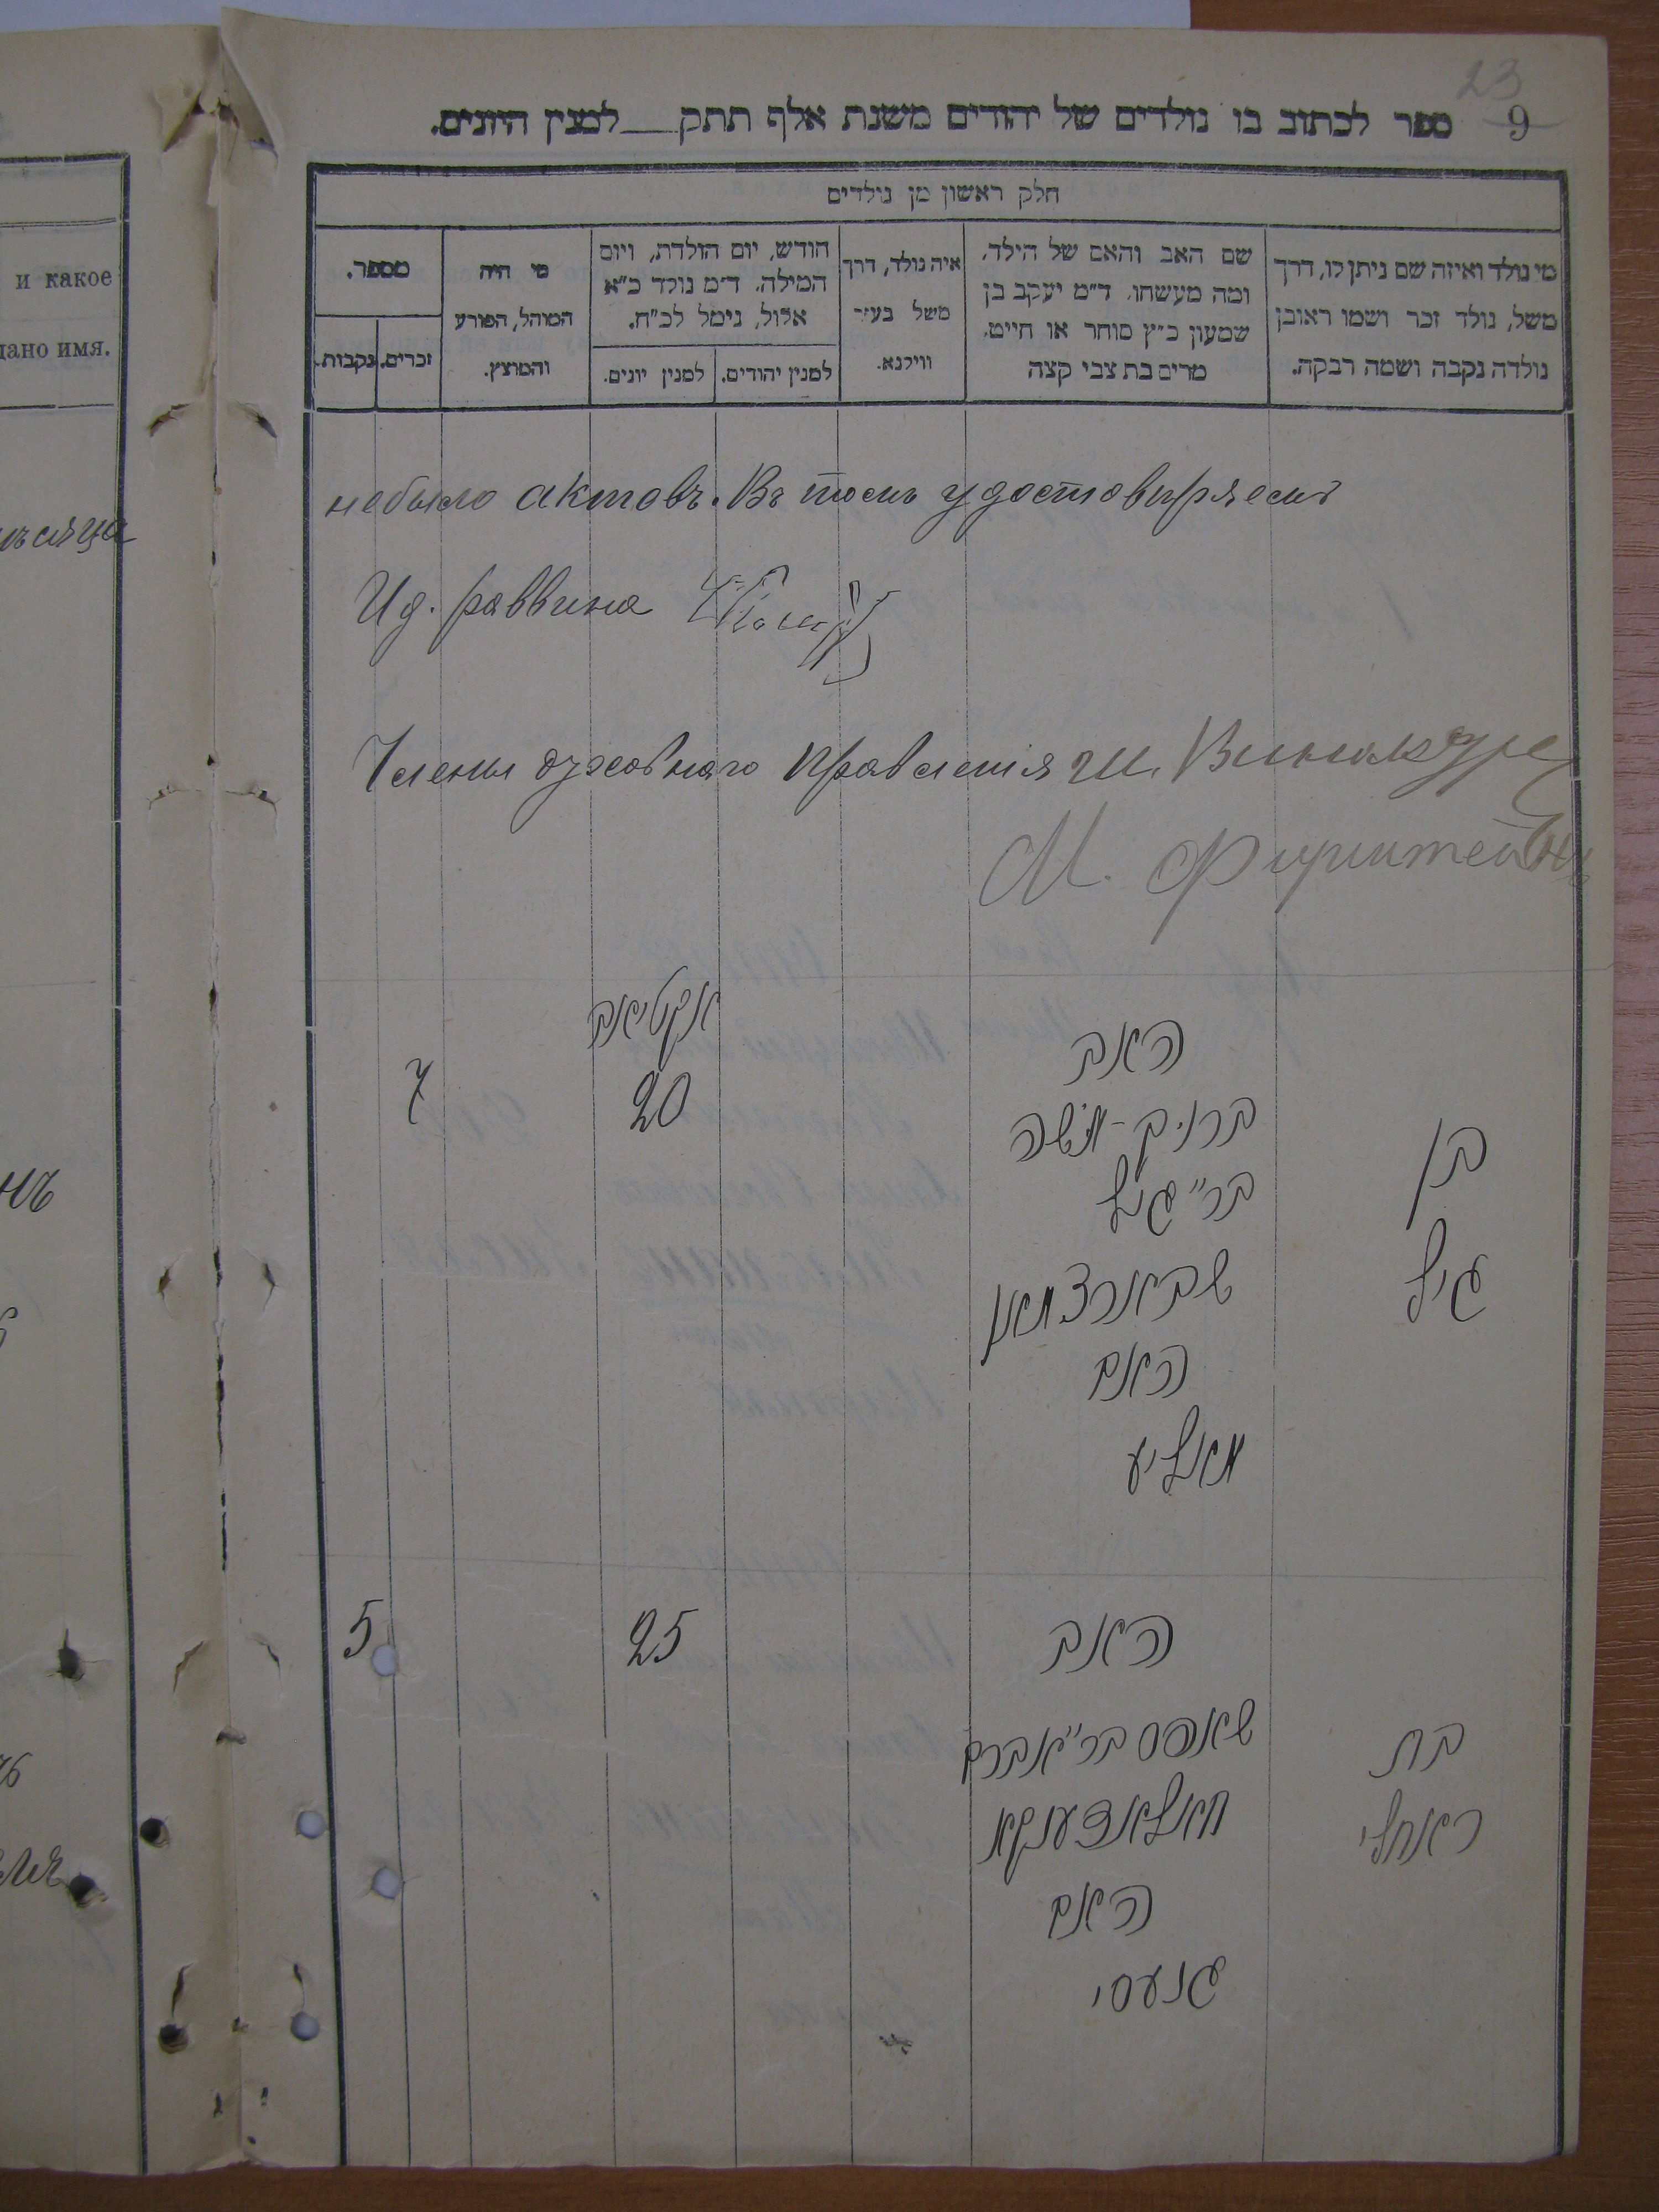 23
9
ספר לכתוב בו נולדים של יהודים משנת אלף תתק__למנין היונים.
חלק ראשון מן נולדים
מי נולד ואיזה שם ניתן לו, דרך
משל, נולד זכר ושמו ראובן
נולדה נקבה ושמה רבקה.
שם האב והאם של הילד,
ומה מעשהו. ד״מ יעקב בן
שמעון כ״ץ סוחר או חייט,
מרים בת צבי קצה
איה נולד, דרך
משל בעיר
ווילנא.
חודש, יום הולדת, ויום
המילה. ד״מ נולד כ״א
אלול, נימל לכ״ח.
למנין יהודים.
למנין יונים.
מי היה
המוהל, הפורע
והמוצץ.
מספר.
זכרים.
נקבות.
и какое
дано имя.
мѣсяца
небыло актовъ. Въ томъ удостовѣряемъ
Ид. раввина
Члены духовнаго правленія Ш. Винокуръ
М. Фирштейнъ
בן
גיל
האב
ברוך-משה
בר״ גיל
שבארצמאן
האם
מאליע
אקטיאב
20
7
בת
ראחלי
האב
שאפס בר״ אברם
חאלאדענקא
האם
גנעסי
25
5